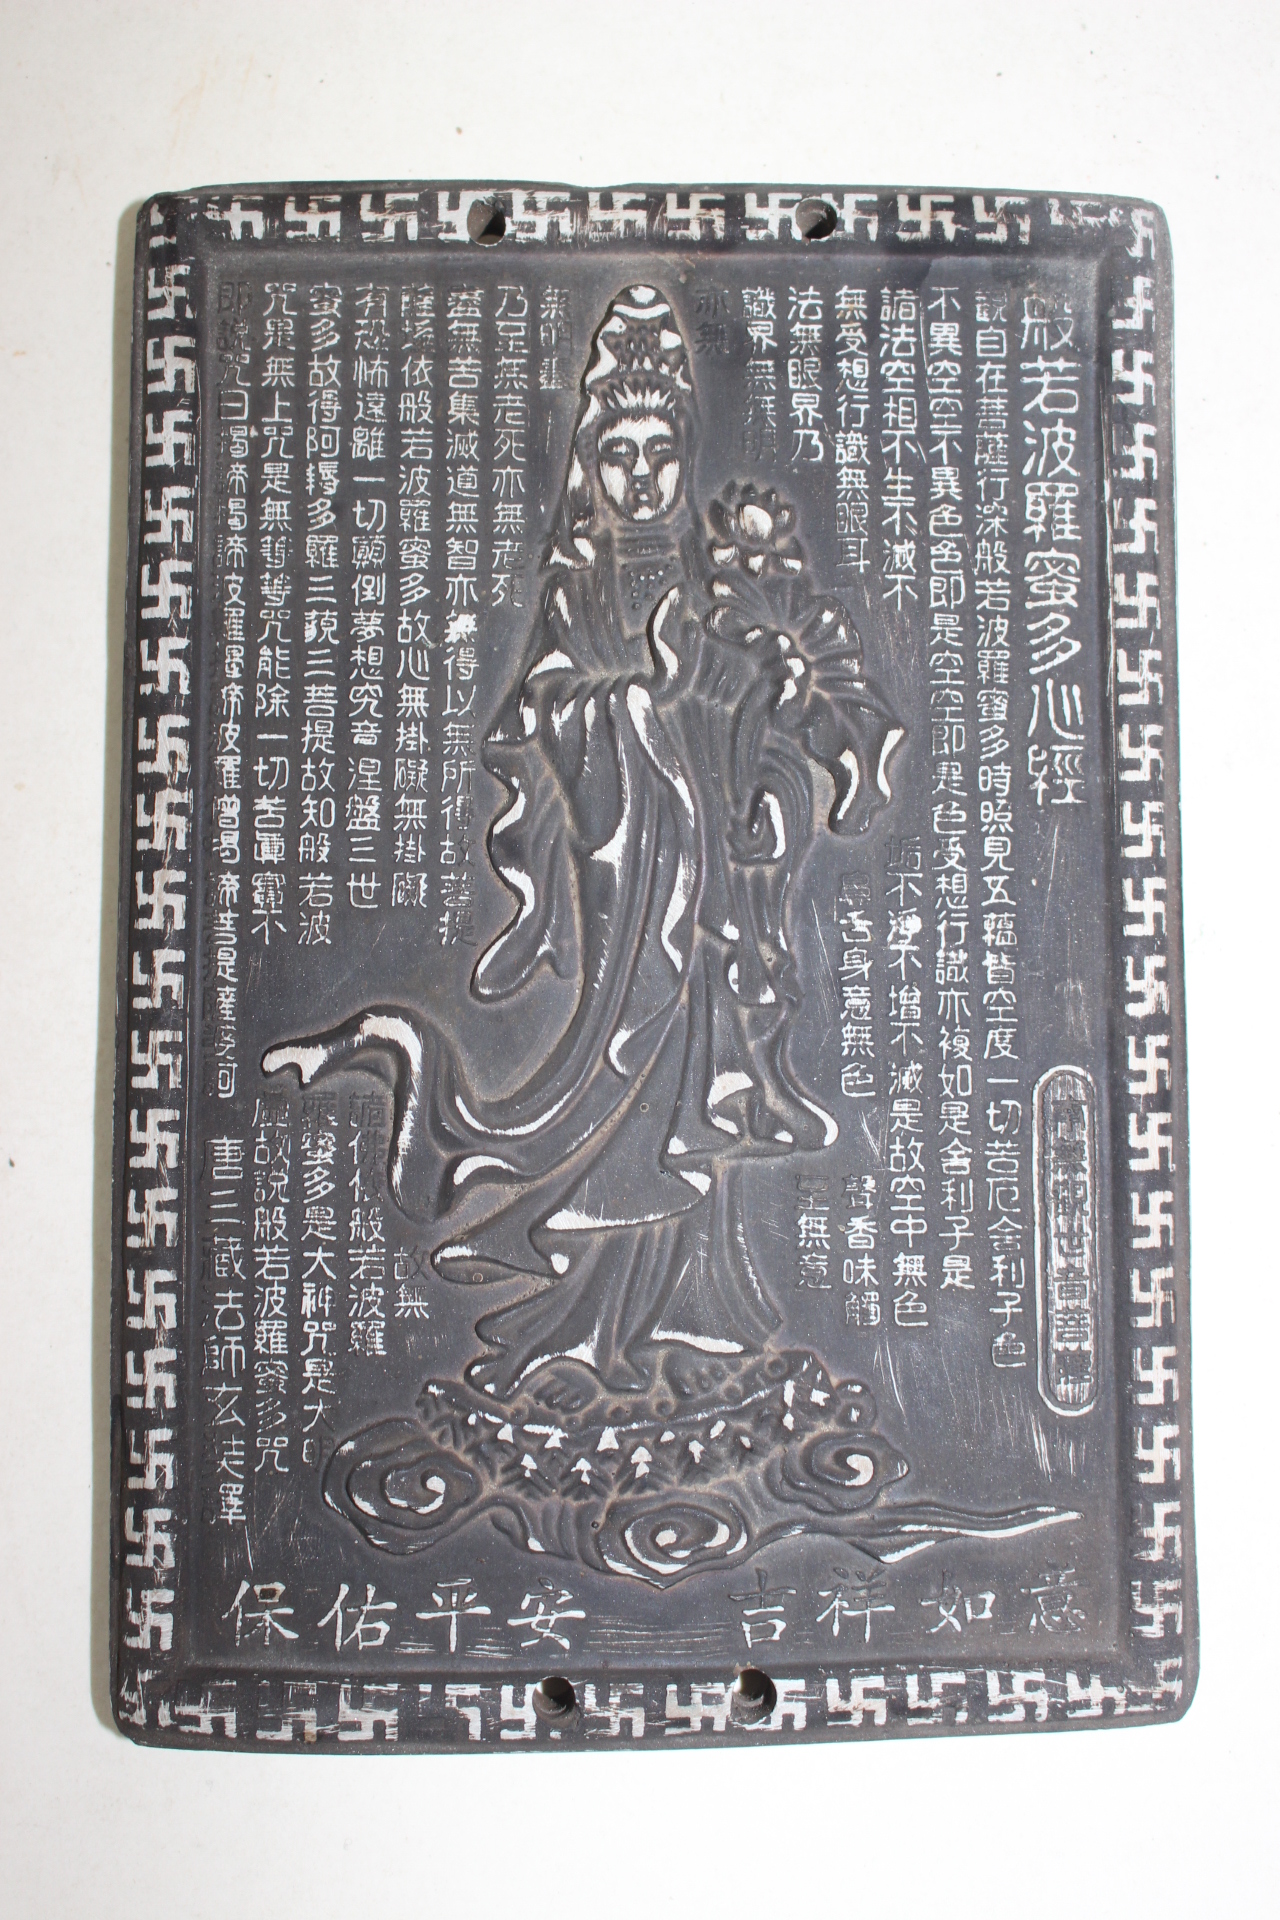 般若波羅蜜多心經
南無觀世音菩薩
觀自在菩薩行深般若波羅蜜多時照見五蘊皆空度一切苦厄舍利子色
不異空空不異色色即是空空即是色受想行識亦複如是舍利子是
諸法空相不生不滅不垢不淨不增不減是故空中無色
無受想行識無眼耳鼻舌身意無色聲香味觸
法無眼界乃至無意
識界無無明
亦無
無明盡
乃至無老死亦無老死
盡無苦集滅道無智亦無得以無所得故菩提
薩埵依般若波羅蜜多故心無掛礙無掛礙故無
有恐怖遠離一切顛倒夢想究竟涅盤三世諸佛依般若波羅
蜜多故得阿耨多羅三藐三菩提故知般若波羅蜜多是大神咒是大明
咒是無上咒是無等等咒能除一切苦真實不虛故說般若波羅蜜多咒
即說咒曰揭帝揭諦波羅揭帝波羅僧揭帝菩提薩婆訶 唐三藏法師玄奘譯
保佑平安 吉祥如意